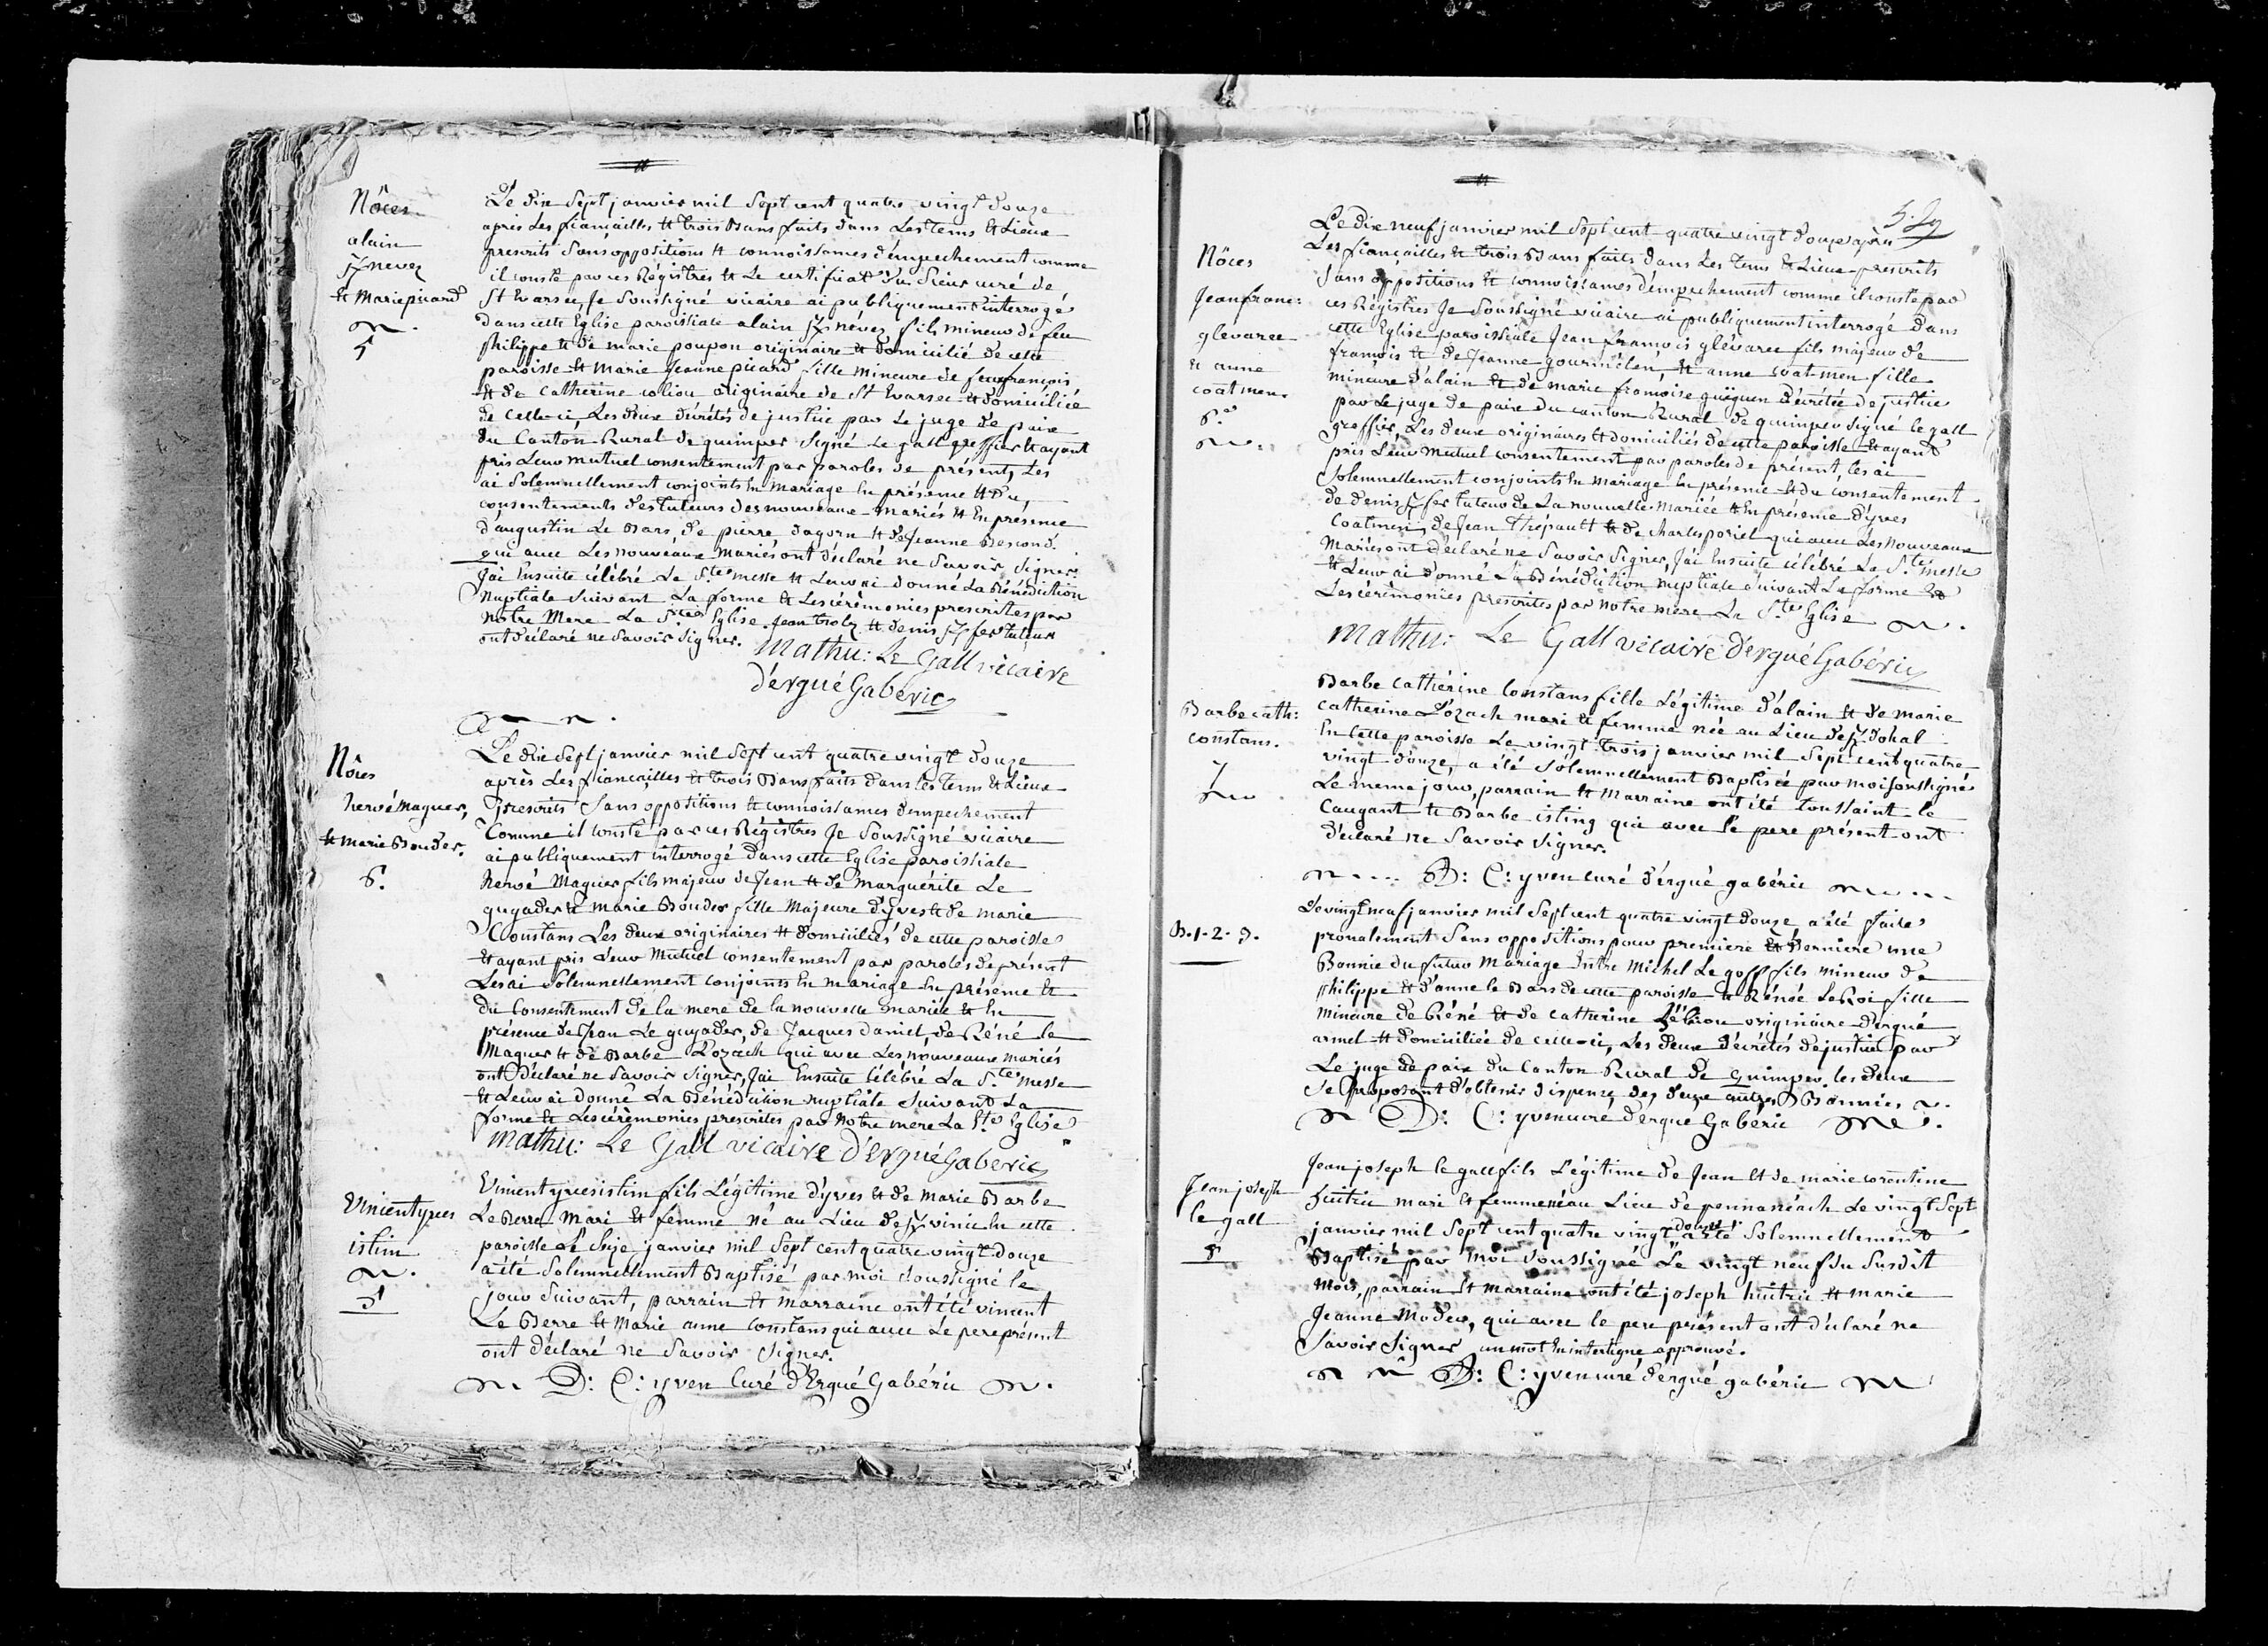 Nôces
alain
K/nevez
et marie picard
5
Le dix sept janvier mil sept cent quatre vingt douze
après les fiançailles et trois bans faits dans les tems et lieux
prescrits sans oppositions et connoissances d'empechement comme
il conste par ces Régistres et le certificat du sieur curé de
St Evarzec, Je soussigné vicaire ai publiquement interrogé
dans cette Eglise paroissiale alain K/névez fils mineur de feu
philippe et de marie poupon originaire et domicilié de cette
paroisse et marie Jeanne picard fille mineure de feu françois
et de Catherine coliou originaire de St Evarzec et domiciliée
de celle-ci, les deux décrétés de justice par le juge de paix
du Canton Rural de quimper signé le gall greffier et ayant
pris leur mutuel consentement par paroles de présent, les
ai solemnellement conjoints en mariage en présence et du
consentements des tuteurs des nouveaux mariés et en présence
d'augustin le Bars, de pierre dagorn et de Jeanne Bescond
qui avec les nouveaux mariés ont déclaré ne savoir signer.
J'ai Ensuite célébré la S.te messe et leur ai donné la Bénédiction
nuptiale suivant la forme et les cérèmonies prescrites par
notre Mere la S.te Eglise. Jean trolez et denis K/fer tuteurs
ont déclaré ne savoir signer. Mathu: Le Gall vicaire
d'ergué Gabéric
Nôces
hervé Maguer,
et marie Bouder.
6.
Le dix sept janvier mil sept cent quatre vingt douze
après les fiançailles et trois Bans faits dans les tems et lieux
prescrits sans oppositions et connoissances d'empechement
Comme il conste par ces Régistres Je soussigné vicaire
ai publiquement interrogé dans cette Eglise paroissiale
hervé Maguer fils majeur de Jean et de marguérite Le
guyader et marie Bouder fille majeure d'yves et de marie
Constans les deux originaires et domiciliés de cette paroisse
et ayant pris leur mutuel consentement par paroles de présent
les ai solemnellement conjoints en mariage en présence et
du Consentement de la mere de la nouvelle mariée et en
présence de Jean Le guyader, de Jacques daniel, de Réné le
Maguer et de Barbe Lozach qui avec les nouveaux mariés
ont déclaré ne savoir signer, J'ai Ensuite Célébré la S.te messe
et leur ai donné la Bénédiction nuptiale suivant la
forme et les cérèmonies prescrites par notre mere la Ste Eglise
Mathu: Le Gall vicaire d'Ergué Gabéric
Vincent yves
istin
5
Vincent yves istin fils Légitime d'yves et de marie Barbe
Le Berre mari et femme né au Lieu de K/vinic en cette
paroisse Le seize janvier mil sept cent quatre vingt douze
a été solemnellement Baptisé par moi soussigné le
jour suivant, parrain et marraine ont été vincent
Le Berre et marie anne Constans qui avec le pere présent
ont déclaré ne savoir signer.
D: C: yven Curé d'Ergué Gabéric
Nôces
Jean franc:
glevarec
et anne
coatmen.
6.
Le dix neuf janvier mil sept cent quatre vingt douze après
Les fiançailles et trois Bans faits dans les tems et Lieux prescrits
sans oppositions et connoissances d'empechement comme il conste par
ces Régistres Je soussigné vicaire ai publiquement interrogé dans
cette Eglise paroissiale Jean françois glévarec fils majeur de
françois et de Jeanne gourmélen, et anne coatmen fille
mineure d'alain et de marie françoise guéguen décrétée de justice
par le juge de paix du canton Rural de quimper signé le gall
greffier, les deux originaires et domiciliés de cette paroisse et ayant
pris leur mutuel consentement par paroles de présent, les ai
solemnellement conjoints en mariage en présence et du consentement
de denis K/fer tuteur de la nouvelle mariée et en présence d'yves
Coatmen, de Jean thépault et de charles poriel qui avec les nouveaux
mariés ont déclaré ne savoir signer, J'ai Ensuite célébré la S.te messe
et leur ai donné la Bénédiction nuptiale suivant la forme et
les cérèmonies prescrites par notre mere la S.te Eglise
Mathu: Le Gall vicaire d'ergué Gabéric
Barbe cath:
constans.
7
Barbe cathérine Constans fille Légitime d'alain et de marie
catherine Lozach mari et femme née au Lieu de K/dohal
En Cette paroisse le vingt trois janvier mil sept cent quatre
vingt douze, a été solemnellement Baptisée par moi soussigné
Le meme jour, parrain et Marraine ont été toussaint le
Caugant et Barbe isting qui avec le pere présent ont
déclaré ne savoir signer.
D: C: yven Curé d'ergué gabéric
B. 1. 2. 3.
Le vingt neuf janvier mil sept cent quatre vingt douze, a été faite
pronalement sans oppositions pour premiere et derniere une
Bannie du futur mariage Entre Michel Le goff fils mineur de
philippe et d'anne le Bars de cette paroisse et Rénée Le Roi fille
mineure de Réné et de catherine originaire d'ergué
armel et domiciliée de celle-ci, les deux décrétés de justice par
Le juge de paix du Canton Rural de quimper, les deux
se proposant d'obtenir dispense des deux autres Bannies
D: C: yven curé d'ergué Gabéric
Jean joseph
le gall
8
Jean joseph le gall fils Légitime de Jean et de marie corentine
huitric mari et femme né au Lieu de pennanéach le vingt sept
janvier mil sept cent quatre vingt douze a été solemnellement
Baptisé par moi soussigné Le vingt neuf du susdit
mois, parrain et marraine ont été joseph huitric et marie
Jeanne Moder, qui avec le pere présent ont déclaré ne
savoir signer, un mot en interligne approuvé.
D: C: yven curé d'ergué gabéric